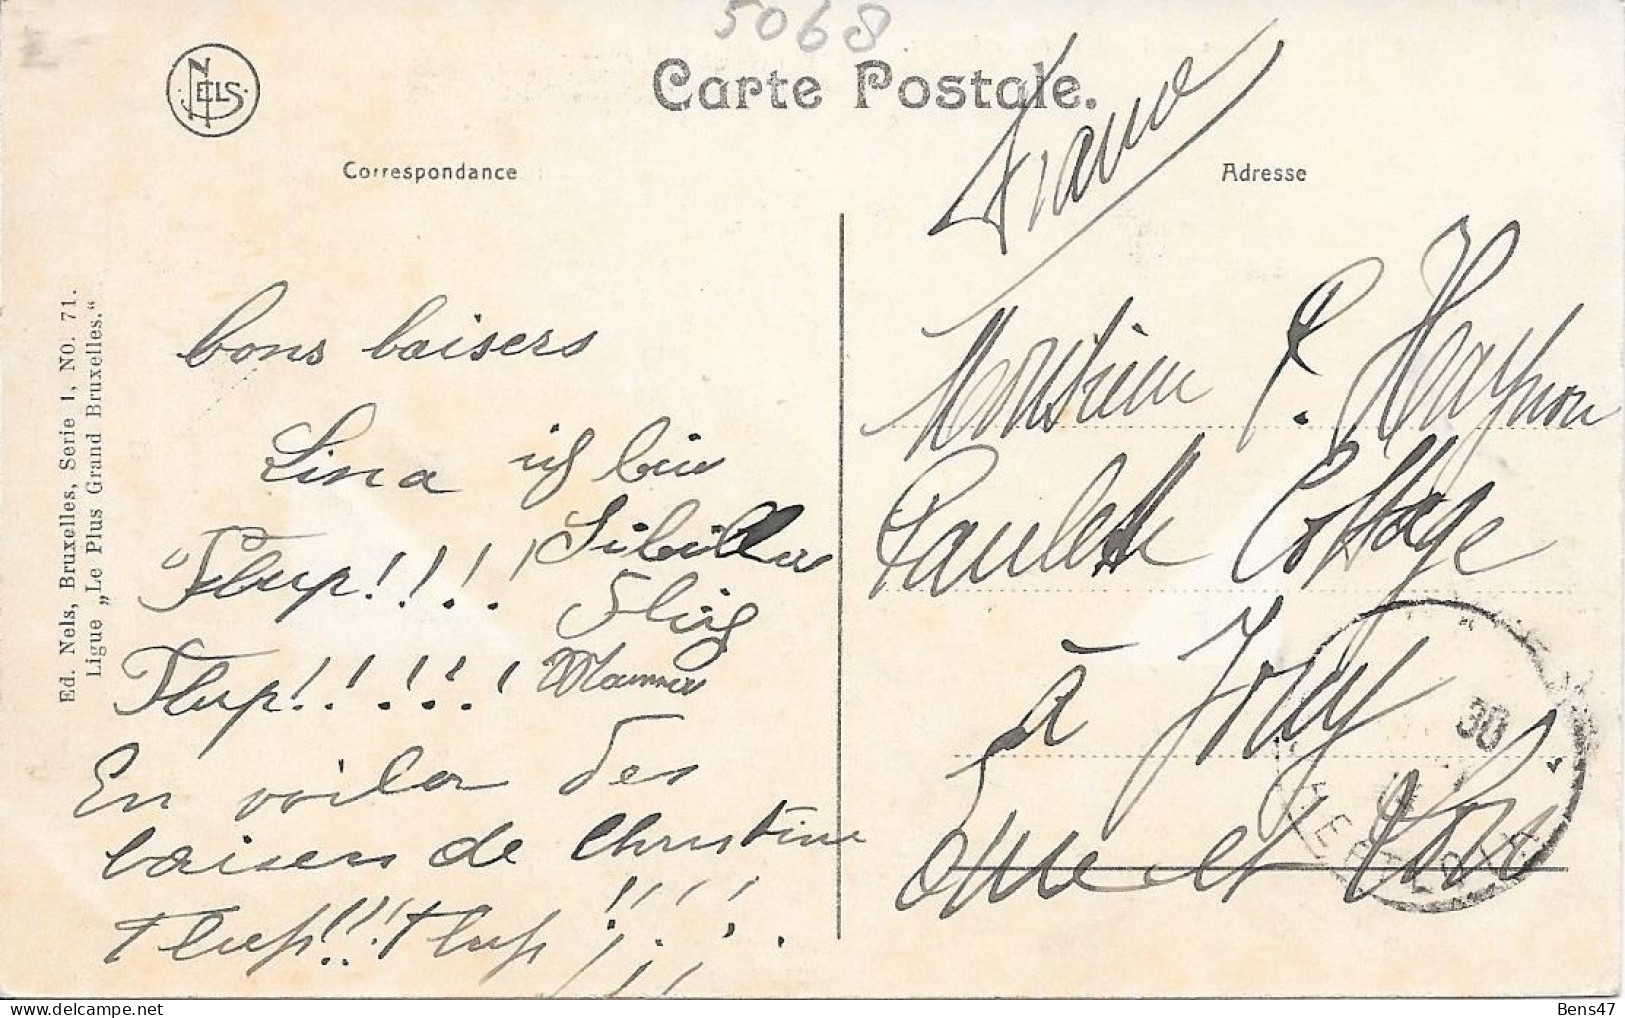 5068
NELS
Carte Postale.
France
Correspondance
Adresse
Ed. Nels, Bruxelles, Serie 1, No. 71.
Ligue „Le Plus Grand Bruxelles.“
bons baisers
Lina ich bin
"Flup!!!! Sibilla
Flup!!!!!
En voila des
baisers de Christine
Flup!!! Flup !!!!
Monsieur P. Haynon
Paulette Cottage
à Jouy
Oise
30